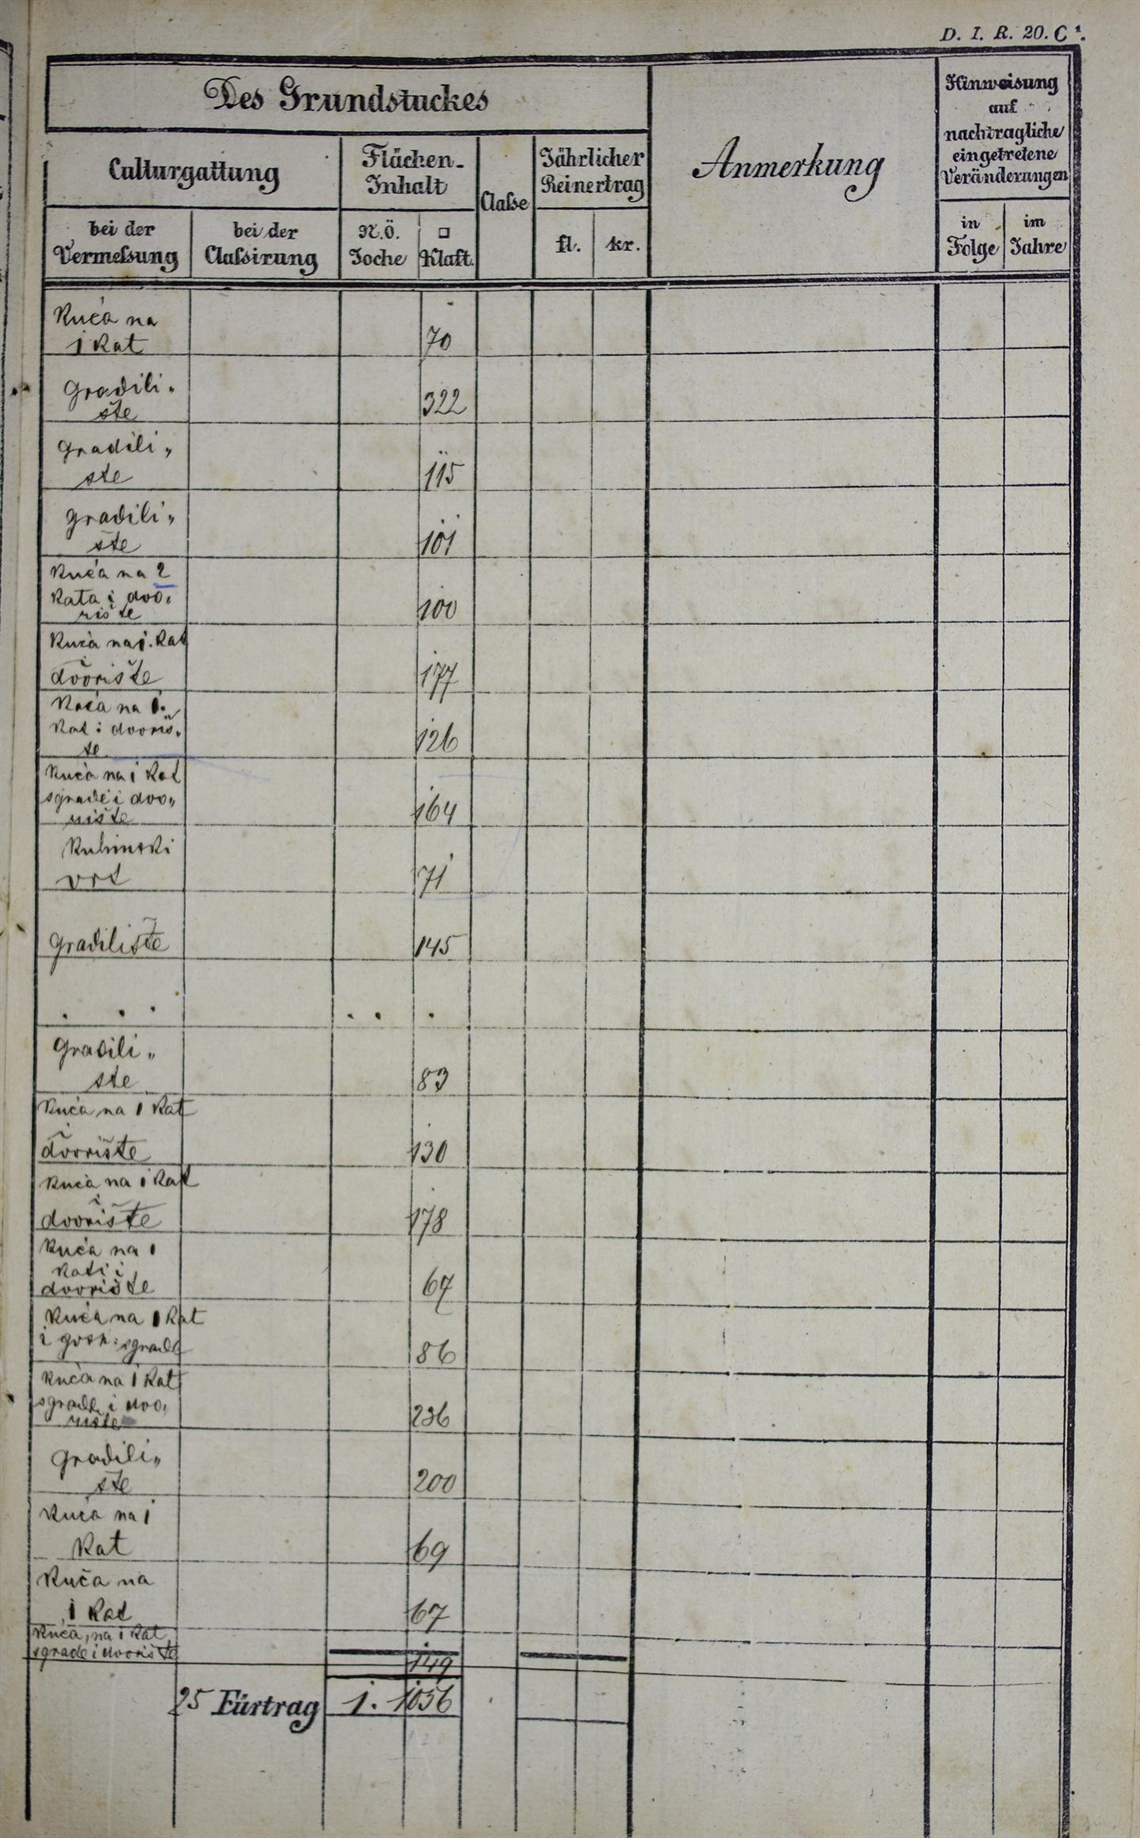 D. I. R. 20. C¹.
Des Grundstuckes
Anmerkung
Hinweisung
auf
nachtragliche
eingetretene
Veränderungen
Culturgattung
Flächen-
Inhalt
Classe
Jährlicher
Reinertrag
bei der
Vermessung
bei der
Classirung
N.Ö.
Joche
□
Klaft.
fl.
kr.
in
Folge
im
Jahre
Kuća na
1 kat
70
gradili„
šte
322
gradili„
ste
115
gradili„
šte
101
Kuća na 2
kata i dvo„
rište
100
Kuća na 1. kat
i
dvorište
177
Kuća na 1.
kat i dvoriš„
te
126
Kuća na 1 kat
sgrade i dvo„
rište
164
Kuhinski
vrt
71
gradilište
145
. . . . . .
gradili„
ste
83
Kuća na 1 kat
i
dvorište
130
Kuća na 1 kat
i
dvorište
178
Kuća na 1
kat i
dvorište
67
Kuća na 1 kat
i gosp: sgrade
86
Kuća na 1 kat
sgrade i dvo„
rište
236
gradili„
šte
200
Kuća na 1
kat
69
Kuča na
1 kat
67
Kuća, na 1 kat
sgrade i dvorište
149
25 Fürtrag 1. 1056